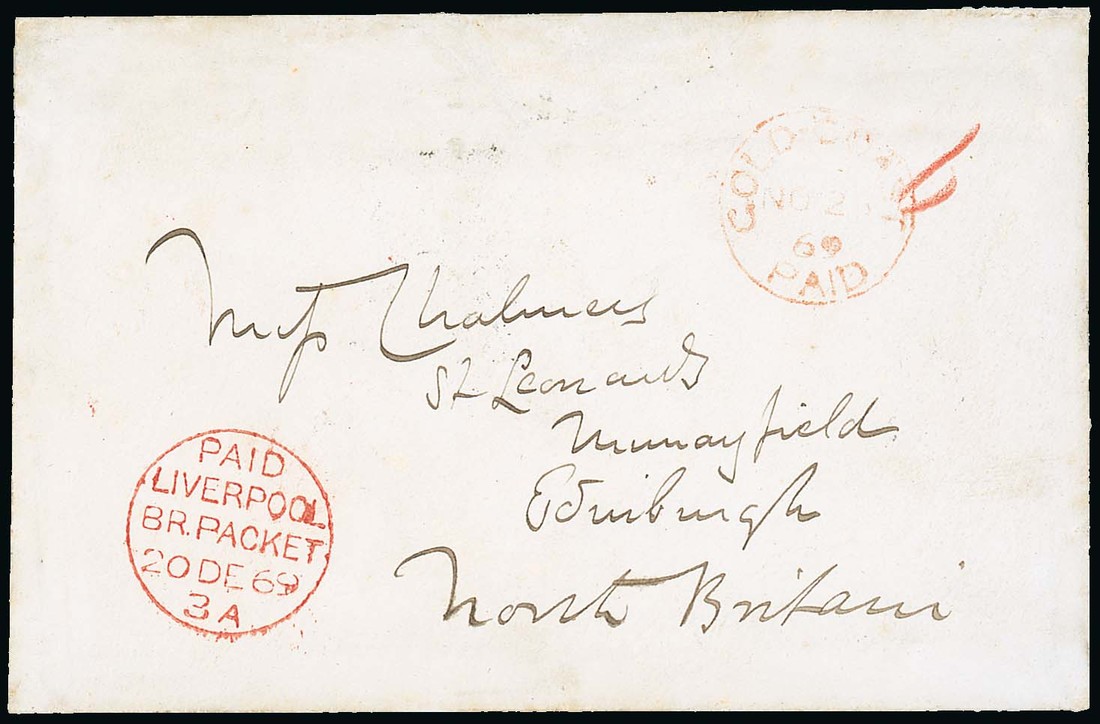 GOLD-COAST
NO 2
69
PAID
Miss Chalmers
St Leonards
Murrayfield
Edinburgh
North Britain
PAID
LIVERPOOL
BR. PACKET
20 DE 69
3 A